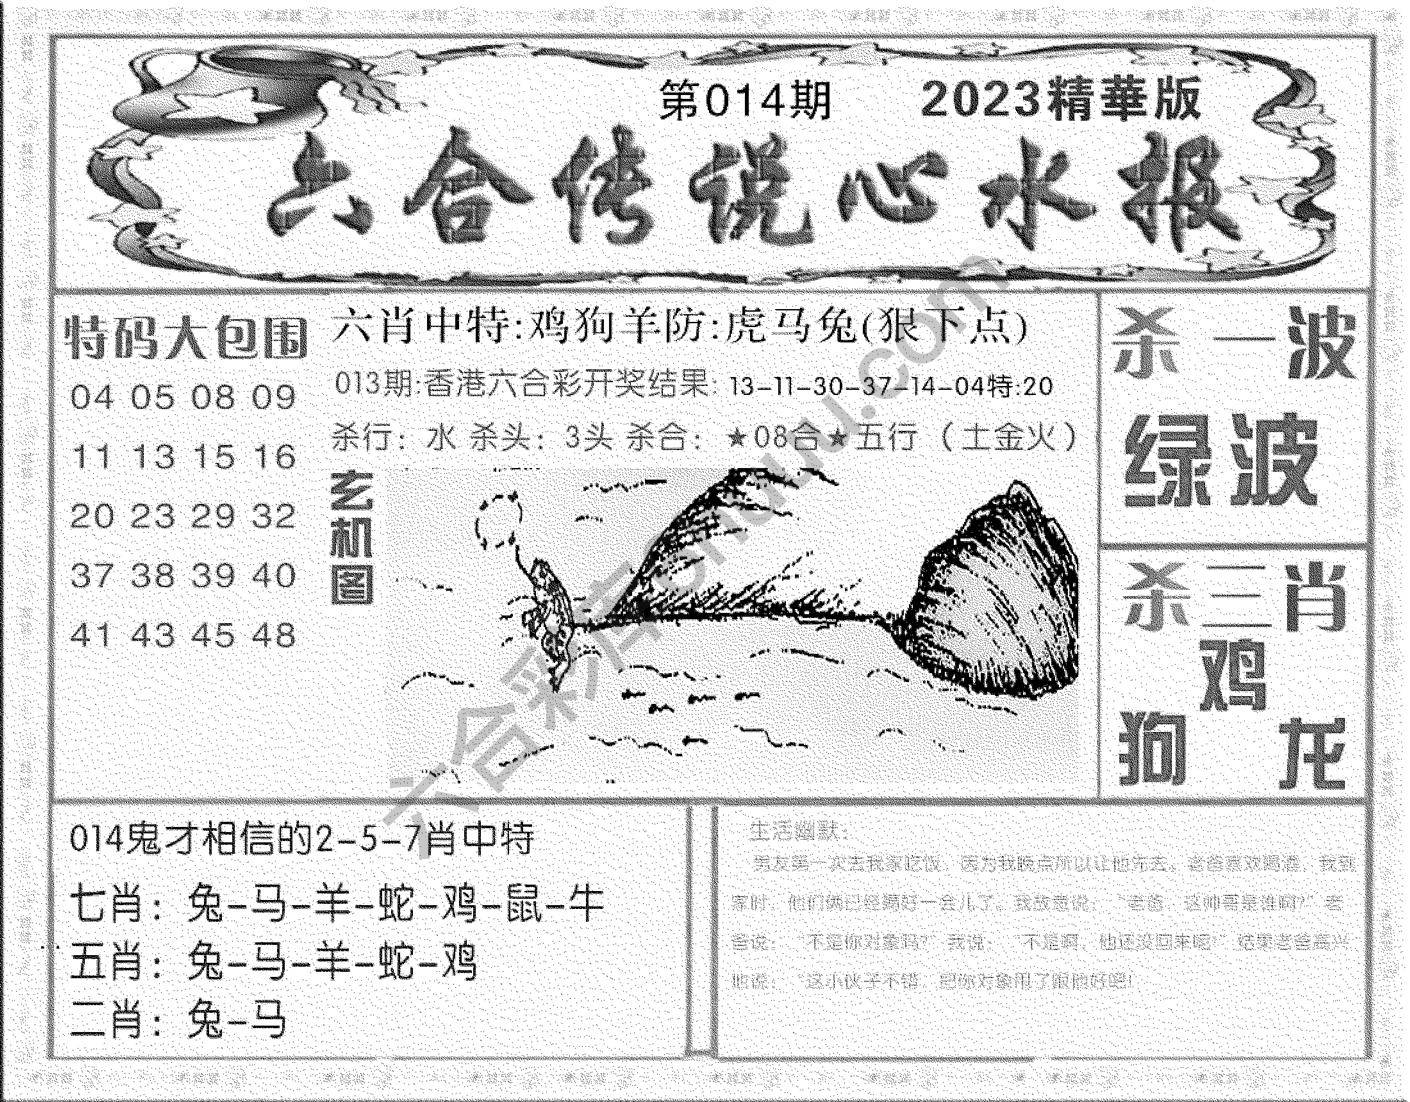 第014期 2023精華版
六合传说心水报
特码大包围
04 05 08 09
11 13 15 16
20 23 29 32
37 38 39 40
41 43 45 48
六肖中特:鸡狗羊防:虎马兔(狠下点)
013期:香港六合彩开奖结果: 13-11-30-37-14-04特:20
杀行：水 杀头：3头 杀合：★08合★五行（土金火）
玄机图
杀一波
绿波
杀三肖
鸡
狗 龙
014鬼才相信的2-5-7肖中特
七肖：兔-马-羊-蛇-鸡-鼠-牛
五肖：兔-马-羊-蛇-鸡
二肖：兔-马
生活幽默：
男友第一次去我家吃饭，因为我晚点所以让他先去。老爸喜欢喝酒，我到
家时，他们俩已经喝好一会儿了。我故意说：“老爸，这帅哥是谁啊?”老
爸说：“不是你对象吗?”我说：“不是啊，他还没回来呢!”结果老爸高兴
地说：“这小伙子不错，把你对象甩了跟他好吧!
六合彩库